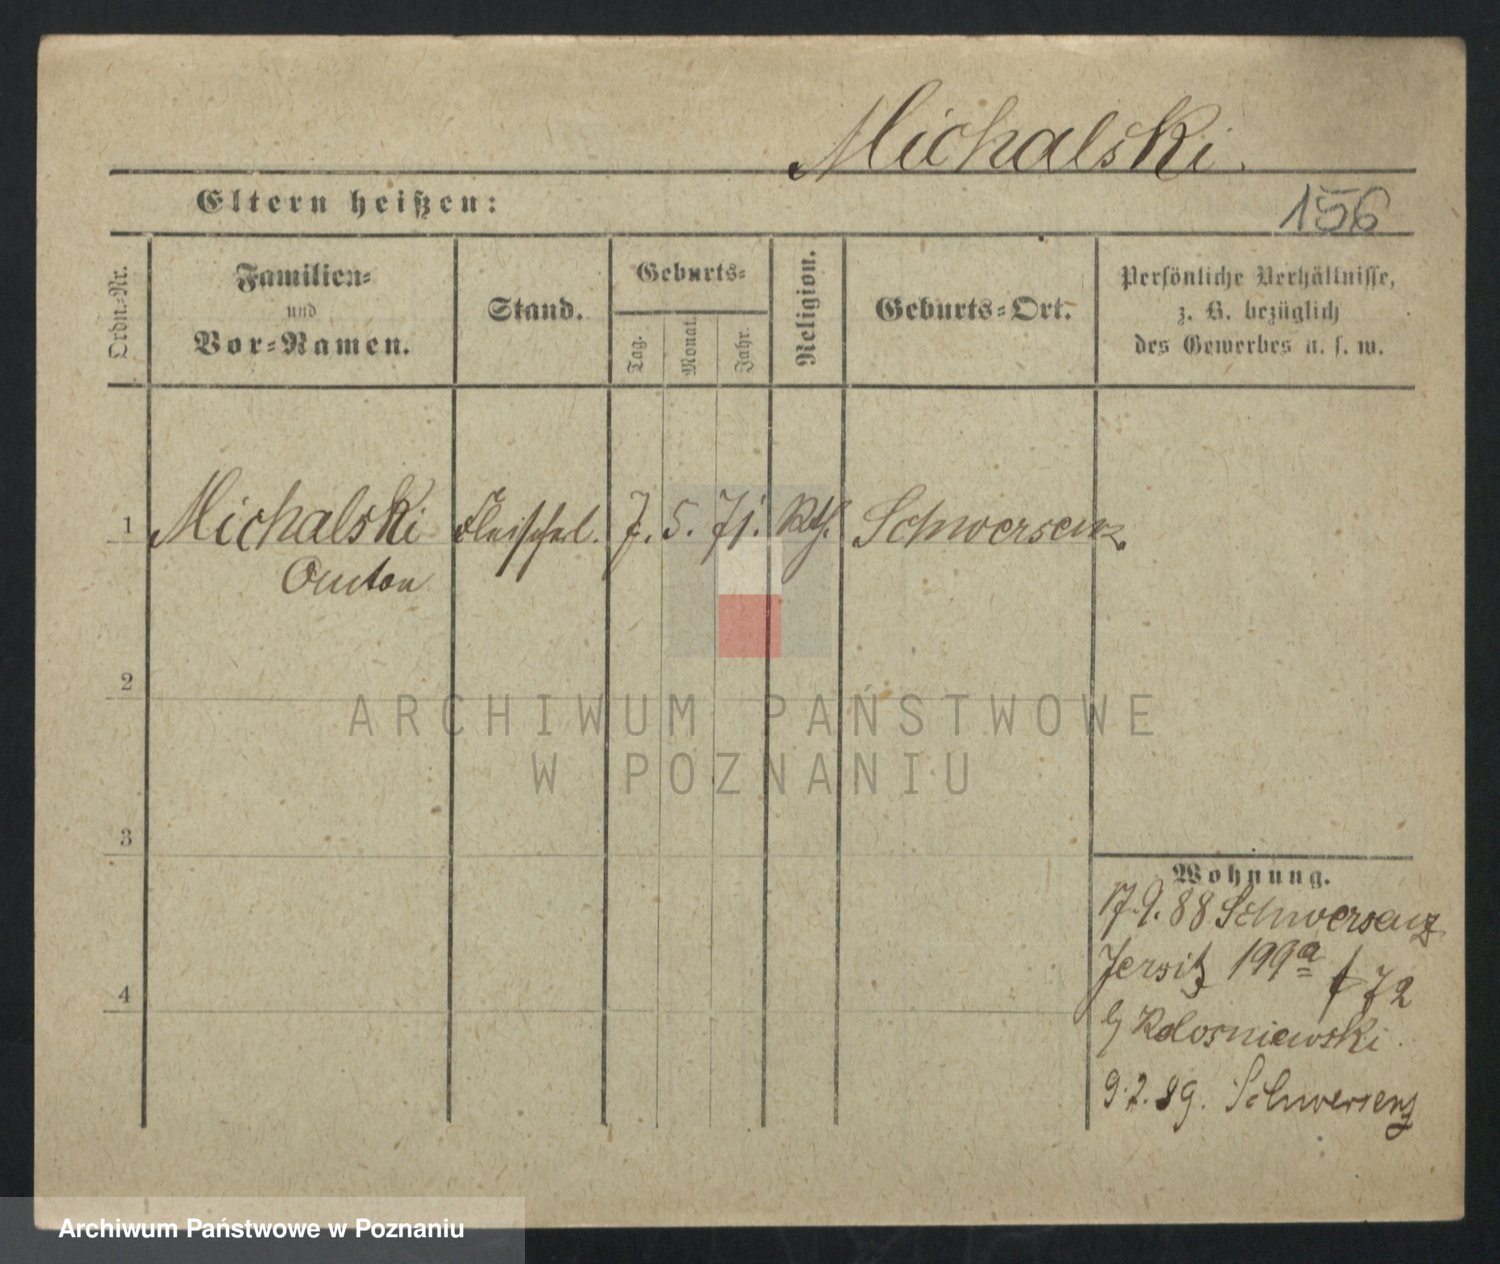 Michalski
Eltern heißen:
156
Ordn.-Nr.
Familien-
und
Vor-Namen.
Stand.
Geburts-
Tag.
Monat.
Jahr.
Religion.
Geburts-Ort.
Persönliche Verhältnisse,
z. B. bezüglich
des Gewerbes u. s. w.
1 Michalski Fleischerl. 7. 5. 71. Kth. Schwersenz
Anton
2
3
4
Wohnung.
17.9.88 Schwersenz
Jersitz 199a f 72
b/ Kolosniewski.
9.2.89. Schwersenz
ARCHIWUM PAŃSTWOWE
W POZNANIU
Archiwum Państwowe w Poznaniu